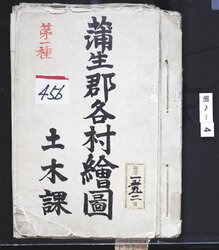 蒲生郡各村繪圖
土木課
第一種
456
一五二